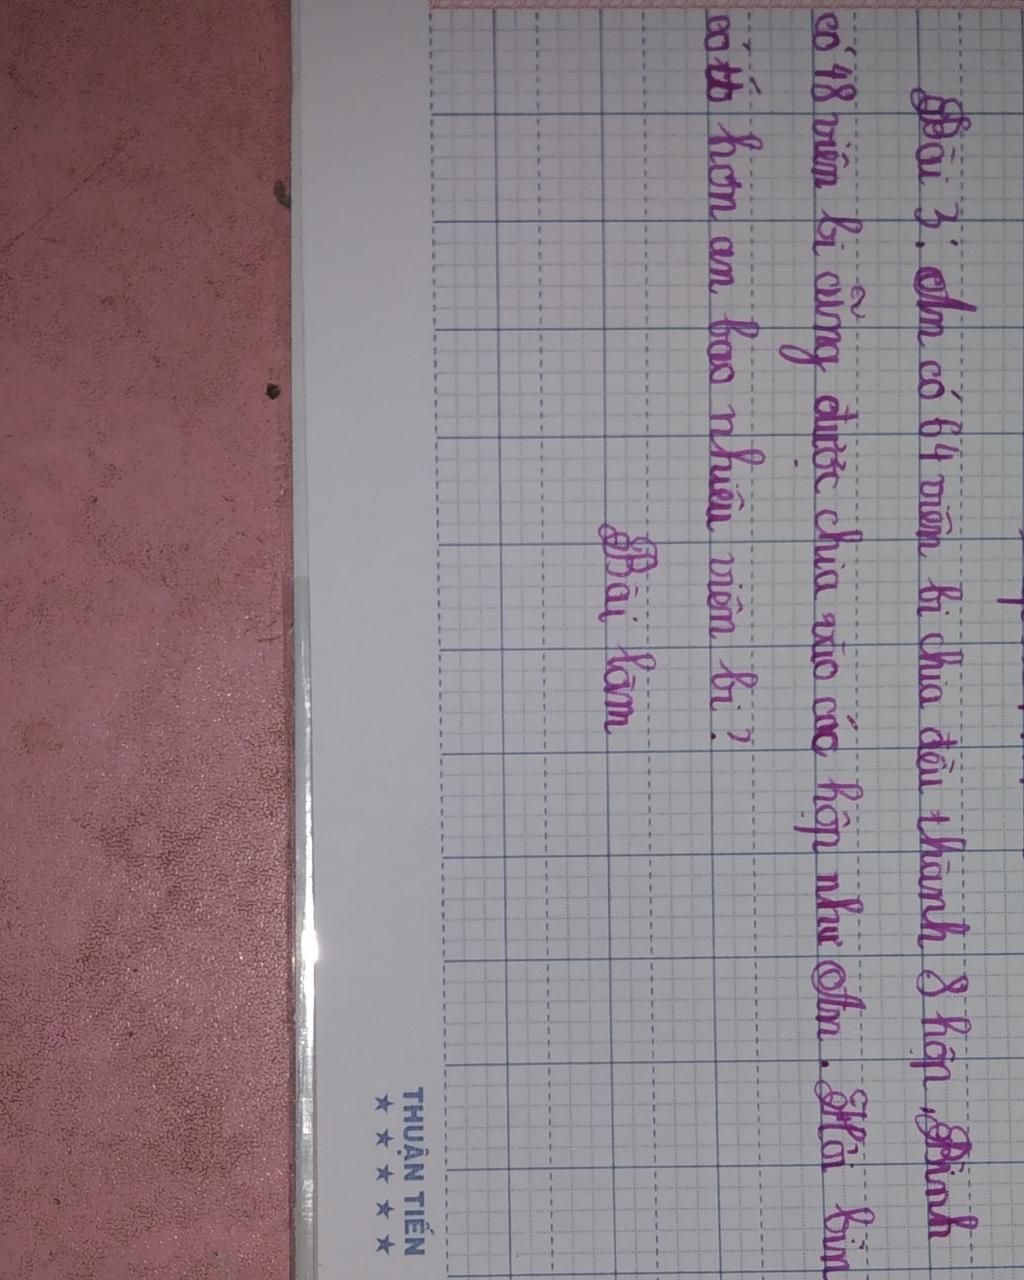 Bài 3: An có 64 viên bi chia đều thành 8 hộp, Bình
có 48 viên bi cũng được chia vào các hộp như An. Hỏi bìn
có ít hơn an bao nhiêu viên bi?
Bài làm
THUẬN TIẾN